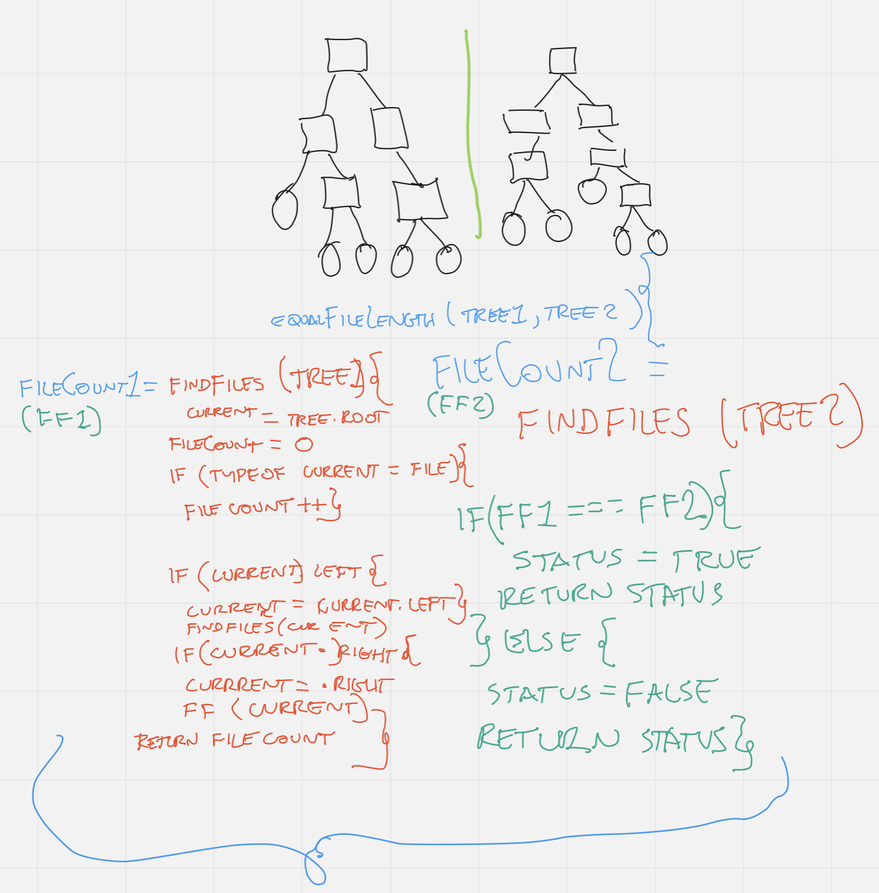 EQUALFILELENGTH (TREE1, TREE2)
FILECOUNT1 = FINDFILES (TREE1){
(FF1)
CURRENT = TREE.ROOT
FILECOUNT = 0
IF (TYPEOF CURRENT = FILE){
FILE COUNT ++}
IF (CURRENT) LEFT {
CURRENT = CURRENT.LEFT}
FINDFILES (CUR ENT)
IF (CURRENT.) RIGHT {
CURRRENT = .RIGHT
FF (CURRENT)
RETURN FILECOUNT }
FILECOUNT2 =
(FF2)
FINDFILES (TREE2)
IF(FF1 === FF2){
STATUS = TRUE
RETURN STATUS
} ELSE {
STATUS = FALSE
RETURN STATUS}